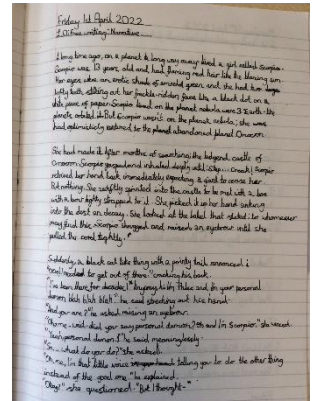 Friday 1st April 2022
L.O: Free writing: Narrative
A long time ago, on a planet far long way away lived a girl called Scorpio.
Scorpio was 13 years old and had flaming red hair like the blazing sun.
Her eyes were an exotic shade of emerald green and she had two
teeth sticking out her freckle-ridden face like a black dot on a
white piece of paper. Scorpio lived on the planet nebula were 3 Earth-like
planets orbited it. But Scorpio wasn't on the planet nebula; she was
had returned to the planet abandoned planet Omicron
She had made it. After months of searching the castle of
Omicron. Scorpio and inhaled deeply and step... Creak! Scorpio
retired her hand back immediately expecting a to sense her
But nothing. She swiftly into the castle to be met with a box
with a tightly strapped to it. She picked it up her hand sinking
into the dust an decay. She looked at the label that stated: to whomever
may find this. Scorpio shrugged and raised an eyebrow until she
pulled the cord tightly.
Suddenly, a black cat like thing with a pointy tail announced
to get out of there." cracking his back.
"I've been there for decades!" Anyways hi I'm and I'm your personal
demon blah blah blah". he said stretching out his hand
"And you are?" he asked raising an eyebrow.
did you say personal demon? Oh and I'm Scorpio" she
"Yeah personal demon". he said meaninglessly
"So... what do you do?" she asked.
"Oh, no, I'm that little voice telling you to do the other thing
instead of the good one" he explained.
"Okay?" she questioned "But I thought-"